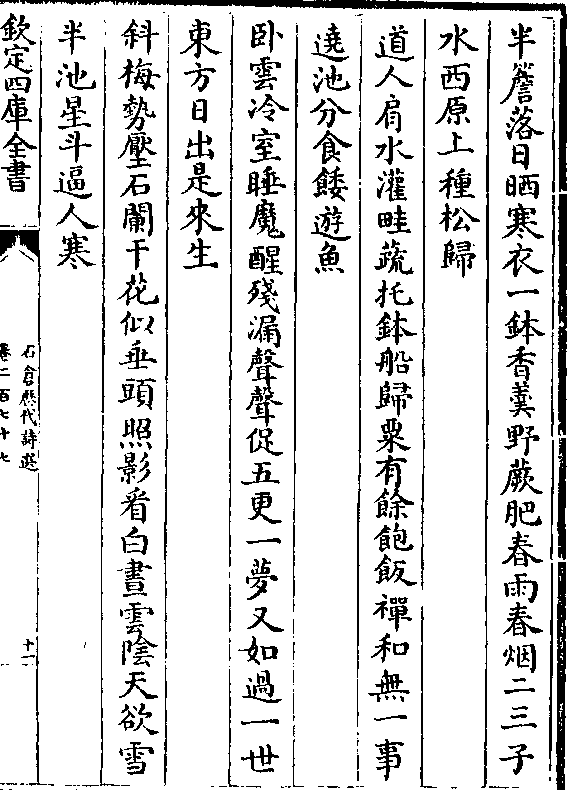 半簷落日晒寒衣一鉢香羮野蕨肥春雨春烟二三子
水西原上種松歸
道人肩水灌畦蔬托鉢船歸粟有餘飽飯禪和無一事
遶池分食餧遊魚
卧雲冷室睡魔醒殘漏聲聲促五更一夢又如過一世
東方日出是來生
斜梅勢壓石闌干花似垂頭照影看白晝雲陰天欲雪
半池星斗逼人寒
欽定四庫全書
石倉歷代詩選
卷二百七十七
十一